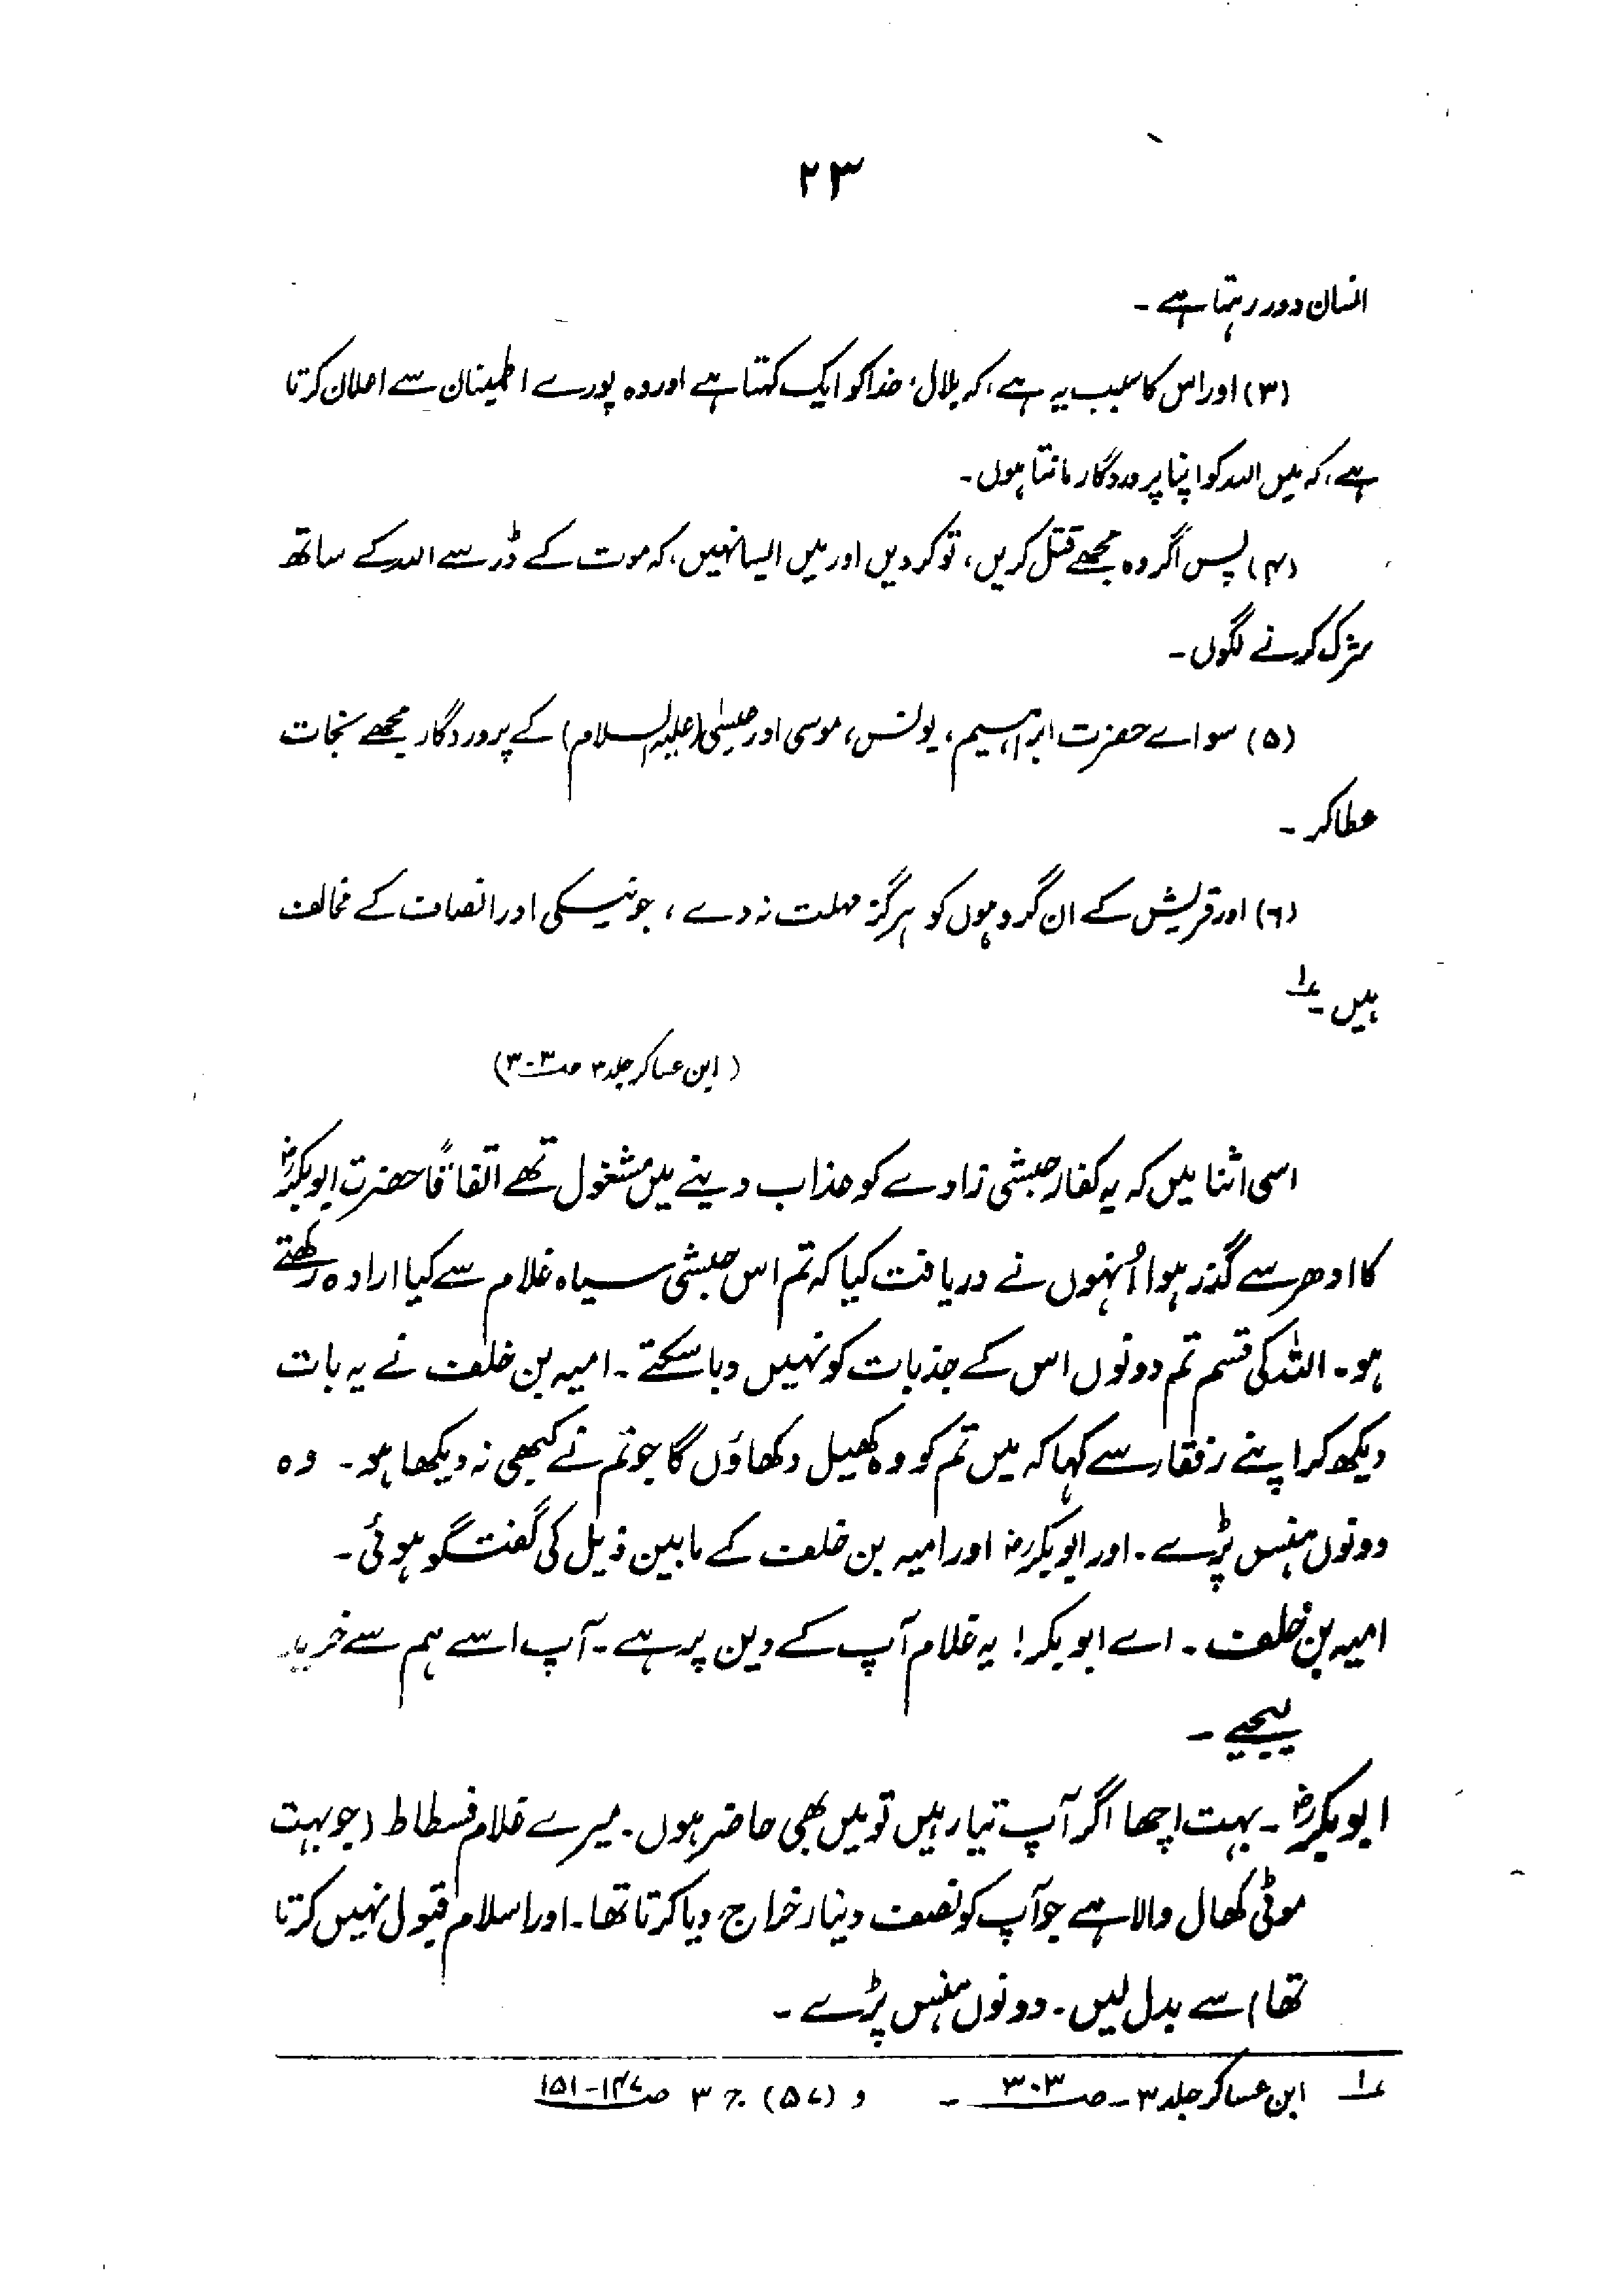 ۲۳
انسان دور رہتا ہے۔
(۳) اور اس کا سبب یہ ہے، کہ بلالؓ خدا کو ایک کہتا ہے اور وہ پورے اطمینان سے اعلان کرتا
ہے، کہ میں اللہ کو اپنا پروردگار مانتا ہوں۔
(۴) پس اگر وہ مجھے قتل کریں، تو کر دیں اور میں ایسا نہیں، کہ موت کے ڈر سے اللہ کے ساتھ
شرک کرنے لگوں۔
(۵) سو اے حضرت ابراہیم، یونس، موسی اور عیسیٰ (علیہ السلام) کے پروردگار مجھے نجات
عطا کر۔
(۶) اور قریش کے ان گروہوں کو ہرگز مہلت نہ دے، جو نیکی اور انصاف کے مخالف
ہیں۔ ۱؎
(ابن عساکر جلد ۳ صـ۳۰۳)
اسی اثنا میں کہ یہ کفار حبشی زادے کو عذاب دینے میں مشغول تھے اتفاقاً حضرت ابوبکرؓ
کا ادھر سے گذر ہوا اُنہوں نے دریافت کیا کہ تم اس حبشی سیاہ غلام سے کیا ارادہ رکھتے
ہو۔ اللہ کی قسم تم دونوں اس کے جذبات کو نہیں دبا سکتے۔ امیہ بن خلف نے یہ بات
دیکھ کر اپنے رفقار سے کہا کہ میں تم کو وہ کھیل دکھاؤں گا جو تم نے کبھی نہ دیکھا ہو۔ وہ
دونوں ہنس پڑے۔ اور ابوبکرؓ اور امیہ بن خلف کے مابین ذیل کی گفتگو ہوئی۔
امیہ بن خلف۔ اے ابوبکر! یہ غلام آپ کے دین پر ہے۔ آپ اسے ہم سے خرید
لیجیے۔
ابوبکرؓ۔ بہت اچھا اگر آپ تیار ہیں تو میں بھی حاضر ہوں۔ میرے غلام فسطاط (جو بہت
موٹی کھال والا ہے جو آپ کو نصف دینار خراج دیا کرتا تھا۔ اور اسلام قبول نہیں کرتا
تھا) سے بدل لیں۔ دونوں ہنس پڑے۔
۱؎ ابن عساکر جلد ۳۔ صـ۳۰۳۔ و (۵۷) ج ۳ صـ۱۴۷-۱۵۱